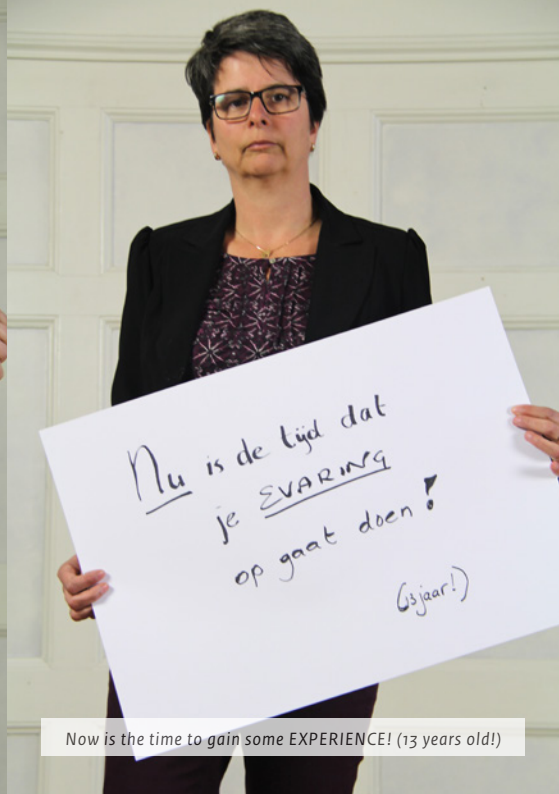 Nu is de tijd dat
je EVARING
op gaat doen!
(13 jaar!)
Now is the time to gain some EXPERIENCE! (13 years old!)